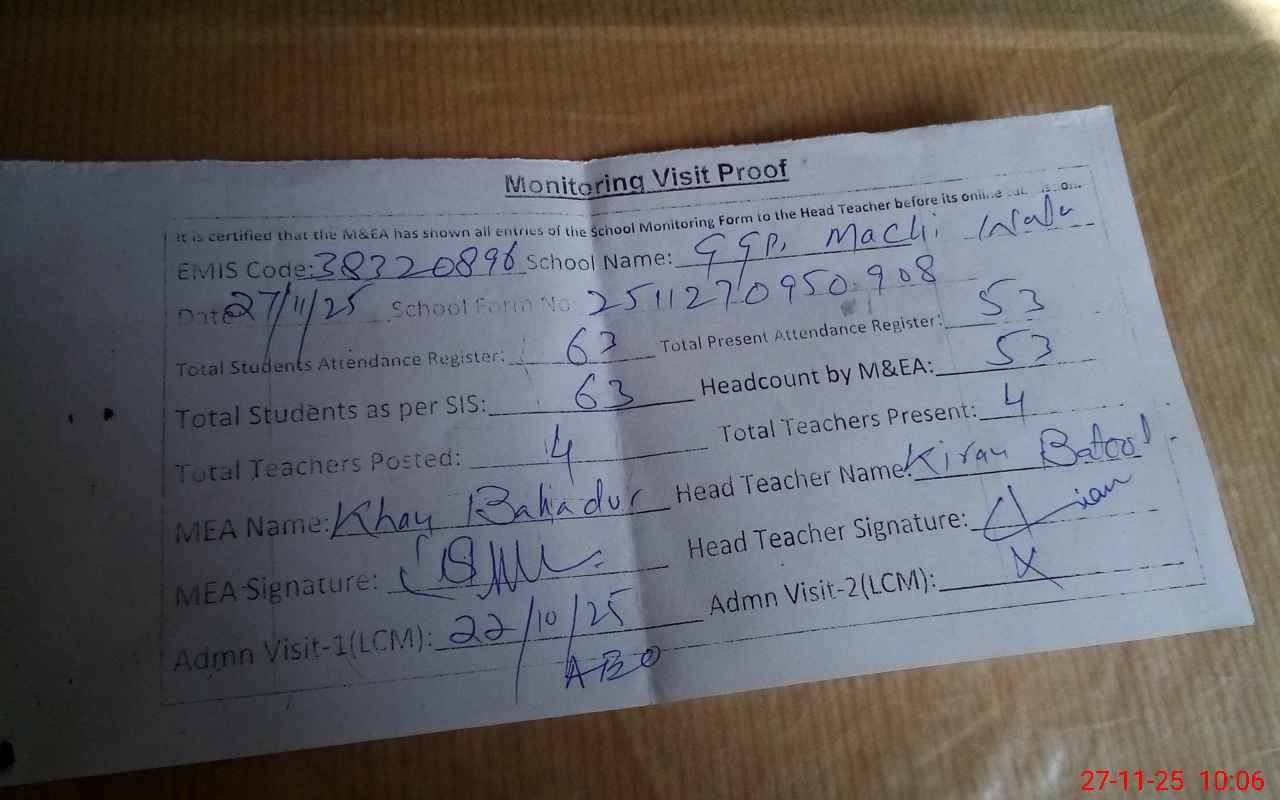 Monitoring Visit Proof
It is certified that the M&EA has shown all entries of the School Monitoring Form to the Head Teacher before its online
EMIS Code: 38320896 School Name: GGP, Machi Wala
Date 27/11/25 School Form No: 2511270950908
Total Students Attendance Register: 63 Total Present Attendance Register: 53
Total Students as per SIS: 63 Headcount by M&EA: 53
Total Teachers Posted: 4 Total Teachers Present: 4
MEA Name: Khan Bahadur Head Teacher Name: Kiran Batool
MEA Signature: Head Teacher Signature: Kiran
Admn Visit-1(LCM): 22/10/25 Admn Visit-2(LCM): X
AEO
27-11-25 10:06